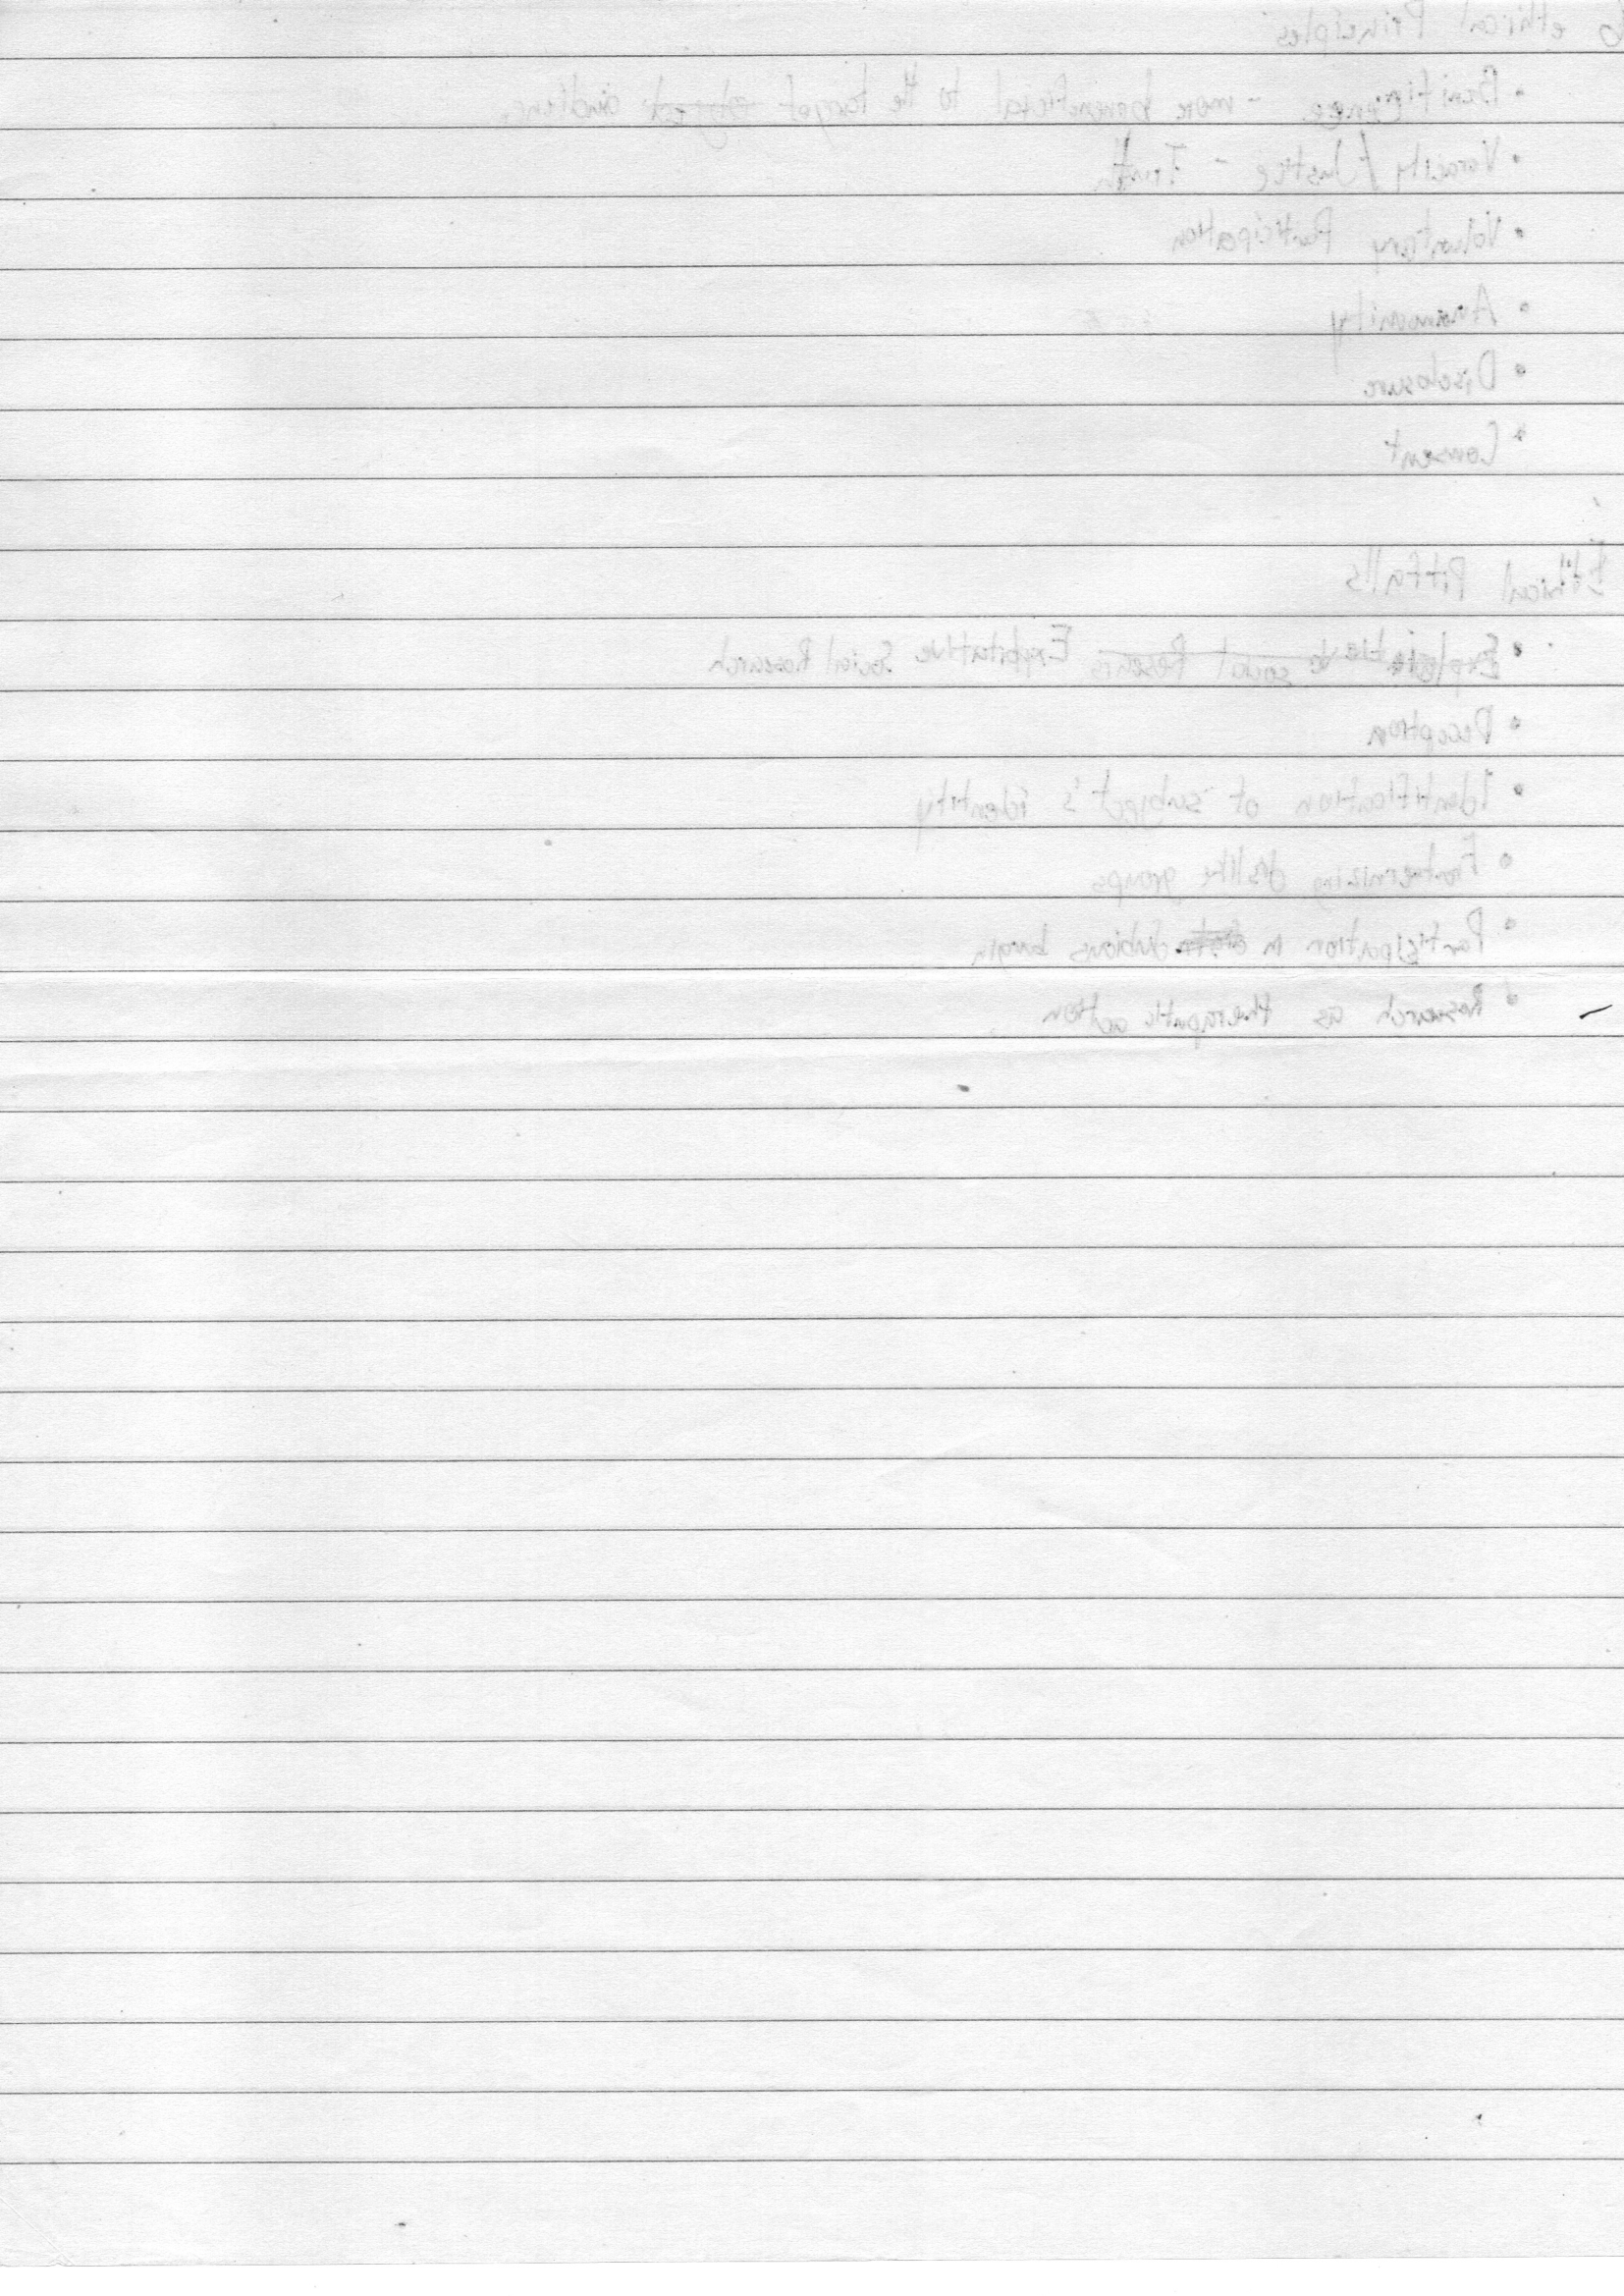 6 ethical Principles
• Benificence - more benenificial to the target audience
• Veracity/Justice - Truth
• Voluntary Participation
• Anonomity
• Disclosure
• Consent
Ethical Pitfalls
• Exploitative social Researc Exploitative Social Research
• Deception
• Identification of subject's identity
• Fraternizing dslike groups
• Participation in dubious bargin
• Research as therapatic action